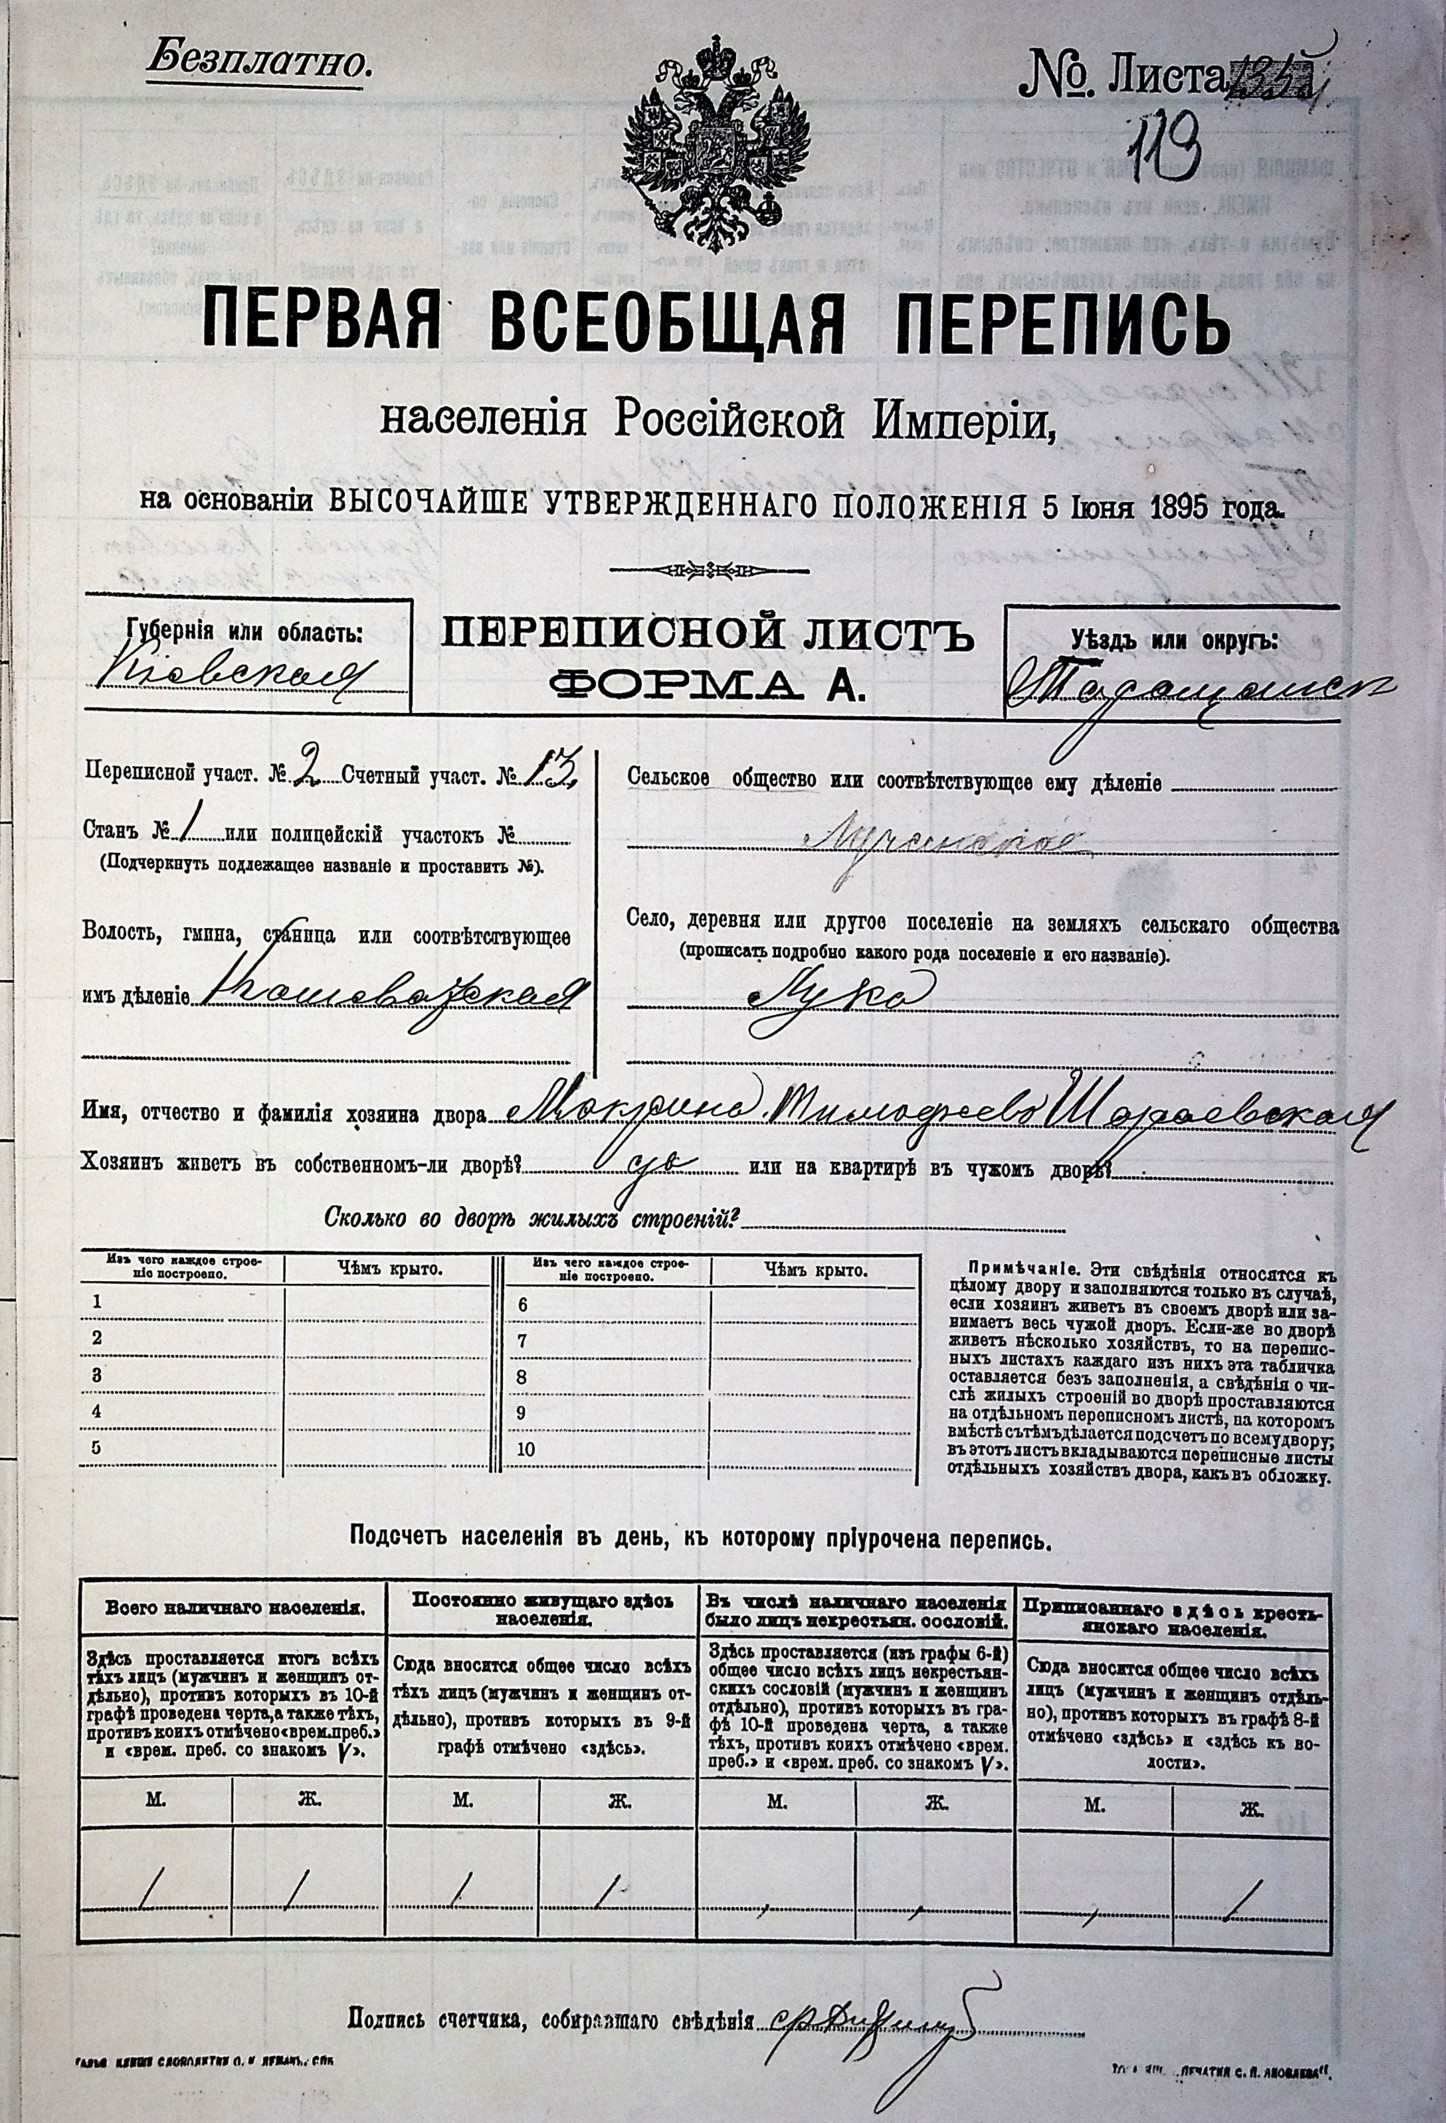 Безплатно.
№. Листа
119
ПЕРВАЯ ВСЕОБЩАЯ ПЕРЕПИСЬ
населенія Россійской Имперіи,
на основаніи ВЫСОЧАЙШЕ УТВЕРЖДЕННАГО ПОЛОЖЕНІЯ 5 Іюня 1895 года.
Губернія или область:
Кіевская
ПЕРЕПИСНОЙ ЛИСТЪ
ФОРМА А.
Уѣздъ или округъ:
Таращанск
Переписной участ. № 2 Счетный участ. № 13
Станъ № 1 или полицейскій участокъ №
(Подчеркнуть подлежащее названіе и проставить №).
Волость, гмина, станица или соотвѣтствующее
имъ дѣленіе Кошеватская
Сельское общество или соотвѣтствующее ему дѣленіе
Лучанское
Село, деревня или другое поселеніе на земляхъ сельскаго общества
(прописать подробно какого рода поселеніе и его названіе).
Лука
Имя, отчество и фамилія хозяина двора Макрина Тимофѣева Шараевская
Хозяинъ живетъ въ собственномъ-ли дворѣ? да или на квартирѣ въ чужомъ дворѣ?
Сколько во дворѣ жилыхъ строеній?
Изъ чего каждое строе-
ніе построено.
Чѣмъ крыто.
Изъ чего каждое строе-
ніе построено.
Чѣмъ крыто.
1
6
2
7
3
8
4
9
5
10
Примѣчаніе. Эти свѣдѣнія относятся къ
цѣлому двору и заполняются только въ случаѣ,
если хозяинъ живетъ въ своемъ дворѣ или за-
нимаетъ весь чужой дворъ. Если-же во дворѣ
живетъ нѣсколько хозяйствъ, то на перепис-
ныхъ листахъ каждаго изъ нихъ эта табличка
оставляется безъ заполненія, а свѣдѣнія о чи-
слѣ жилыхъ строеній во дворѣ проставляются
на отдѣльномъ переписномъ листѣ, на которомъ
вмѣстѣ съ тѣмъ дѣлается подсчетъ по всему двору;
въ этотъ листъ вкладываются переписные листы
отдѣльныхъ хозяйствъ двора, какъ въ обложку.
Подсчетъ населенія въ день, къ которому пріурочена перепись.
Всего наличнаго населенія.
Здѣсь проставляется итогъ всѣхъ
тѣхъ лицъ (мужчинъ и женщинъ от-
дѣльно), противъ которыхъ въ 10-й
графѣ проведена черта, а также тѣхъ,
противъ коихъ отмѣчено «врем. преб.»
и «врем. преб. со знакомъ V».
Постоянно живущаго здѣсь
населенія.
Сюда вносится общее число всѣхъ
тѣхъ лицъ (мужчинъ и женщинъ от-
дѣльно), противъ которыхъ въ 9-й
графѣ отмѣчено «здѣсь».
Въ числѣ наличнаго населенія
было лицъ некрестьян. сословій.
Здѣсь проставляется (изъ графы 6-й)
общее число всѣхъ лицъ некрестьян-
скихъ сословій (мужчинъ и женщинъ
отдѣльно), противъ которыхъ въ гра-
фѣ 10-й проведена черта, а также
тѣхъ, противъ коихъ отмѣчено «врем.
преб.» и «врем. преб. со знакомъ V».
Приписаннаго здѣсь кресть-
янскаго населенія.
Сюда вносится общее число всѣхъ
лицъ (мужчинъ и женщинъ отдѣль-
но), противъ которыхъ въ графѣ 8-й
отмѣчено «здѣсь» и «здѣсь къ во-
лости».
М. Ж. М. Ж. М. Ж. М. Ж.
1 1 1 1 , , , 1
Подпись счетчика, собиравшаго свѣдѣнія